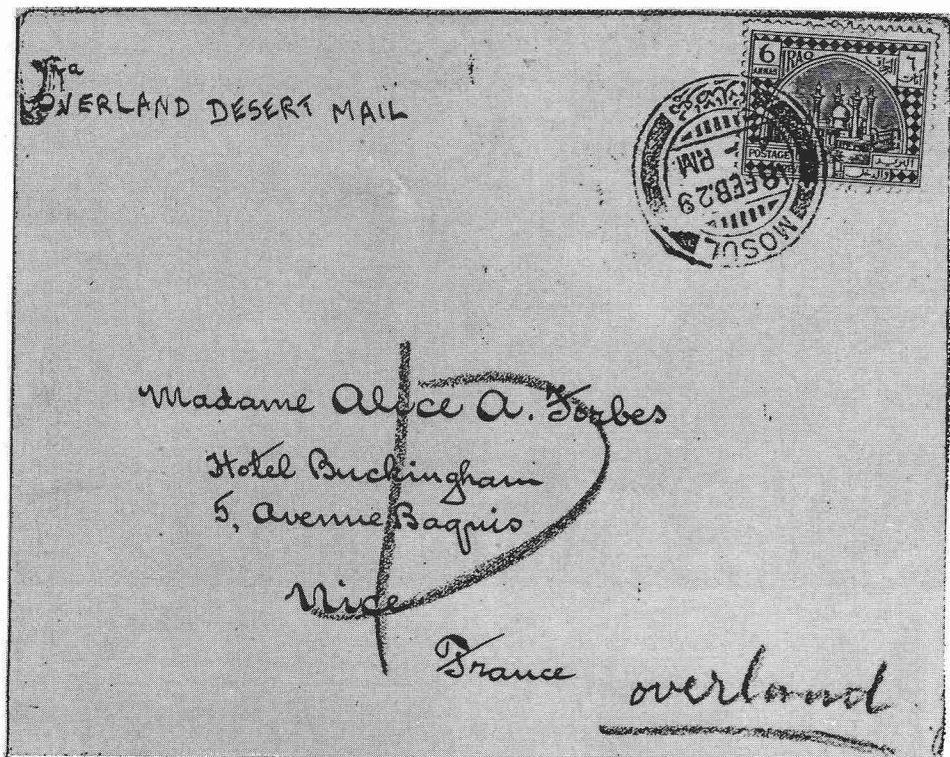 Via
OVERLAND DESERT MAIL
6 IRAQ ٦
ANNAS
POSTAGE
MOSUL
18 FEB.29
P.M
Madame Alice A. Forbes
Hotel Buckingham
5, Avenue Baquis
Nice
France
overland